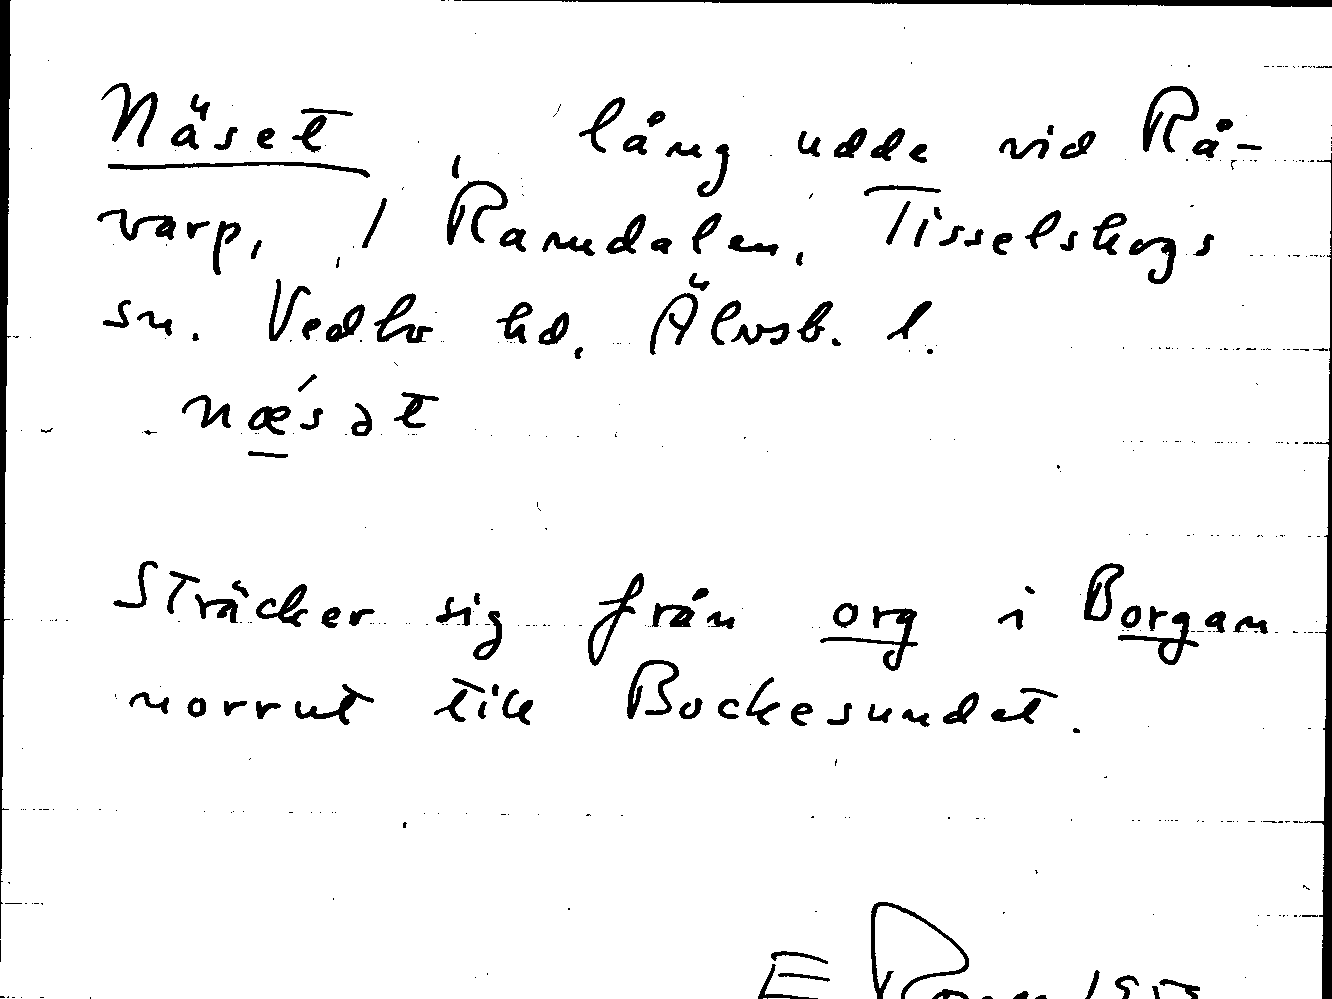 Näset, lång udde vid Rå-
varp, 1 Ramdalen, Tisselskogs
sn. Vedbo hd, Älvsb. l.
nǽsət
Sträcker sig från org i Borgan
norrut till Bockesundet.
E